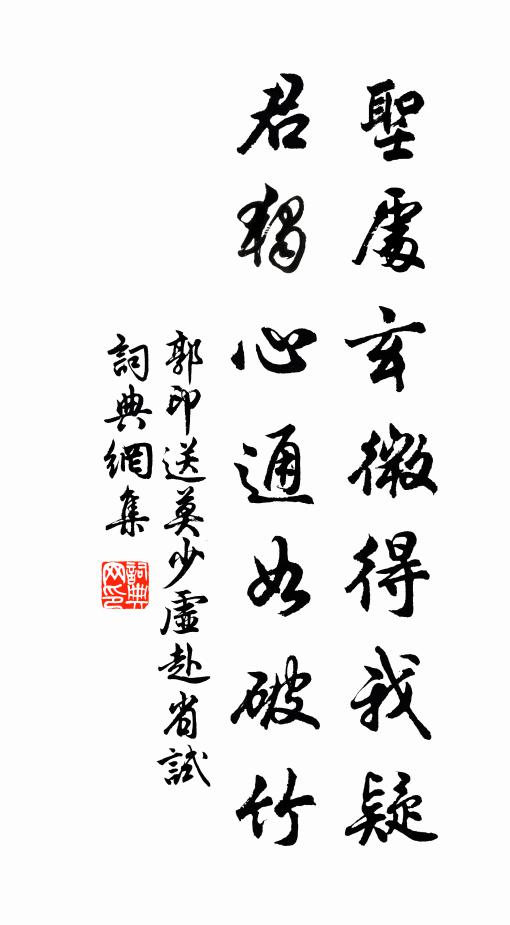 聖處玄微得我疑
君獨心通如破竹
郭印送莫少虛赴省試
詞典網集
詞典网印